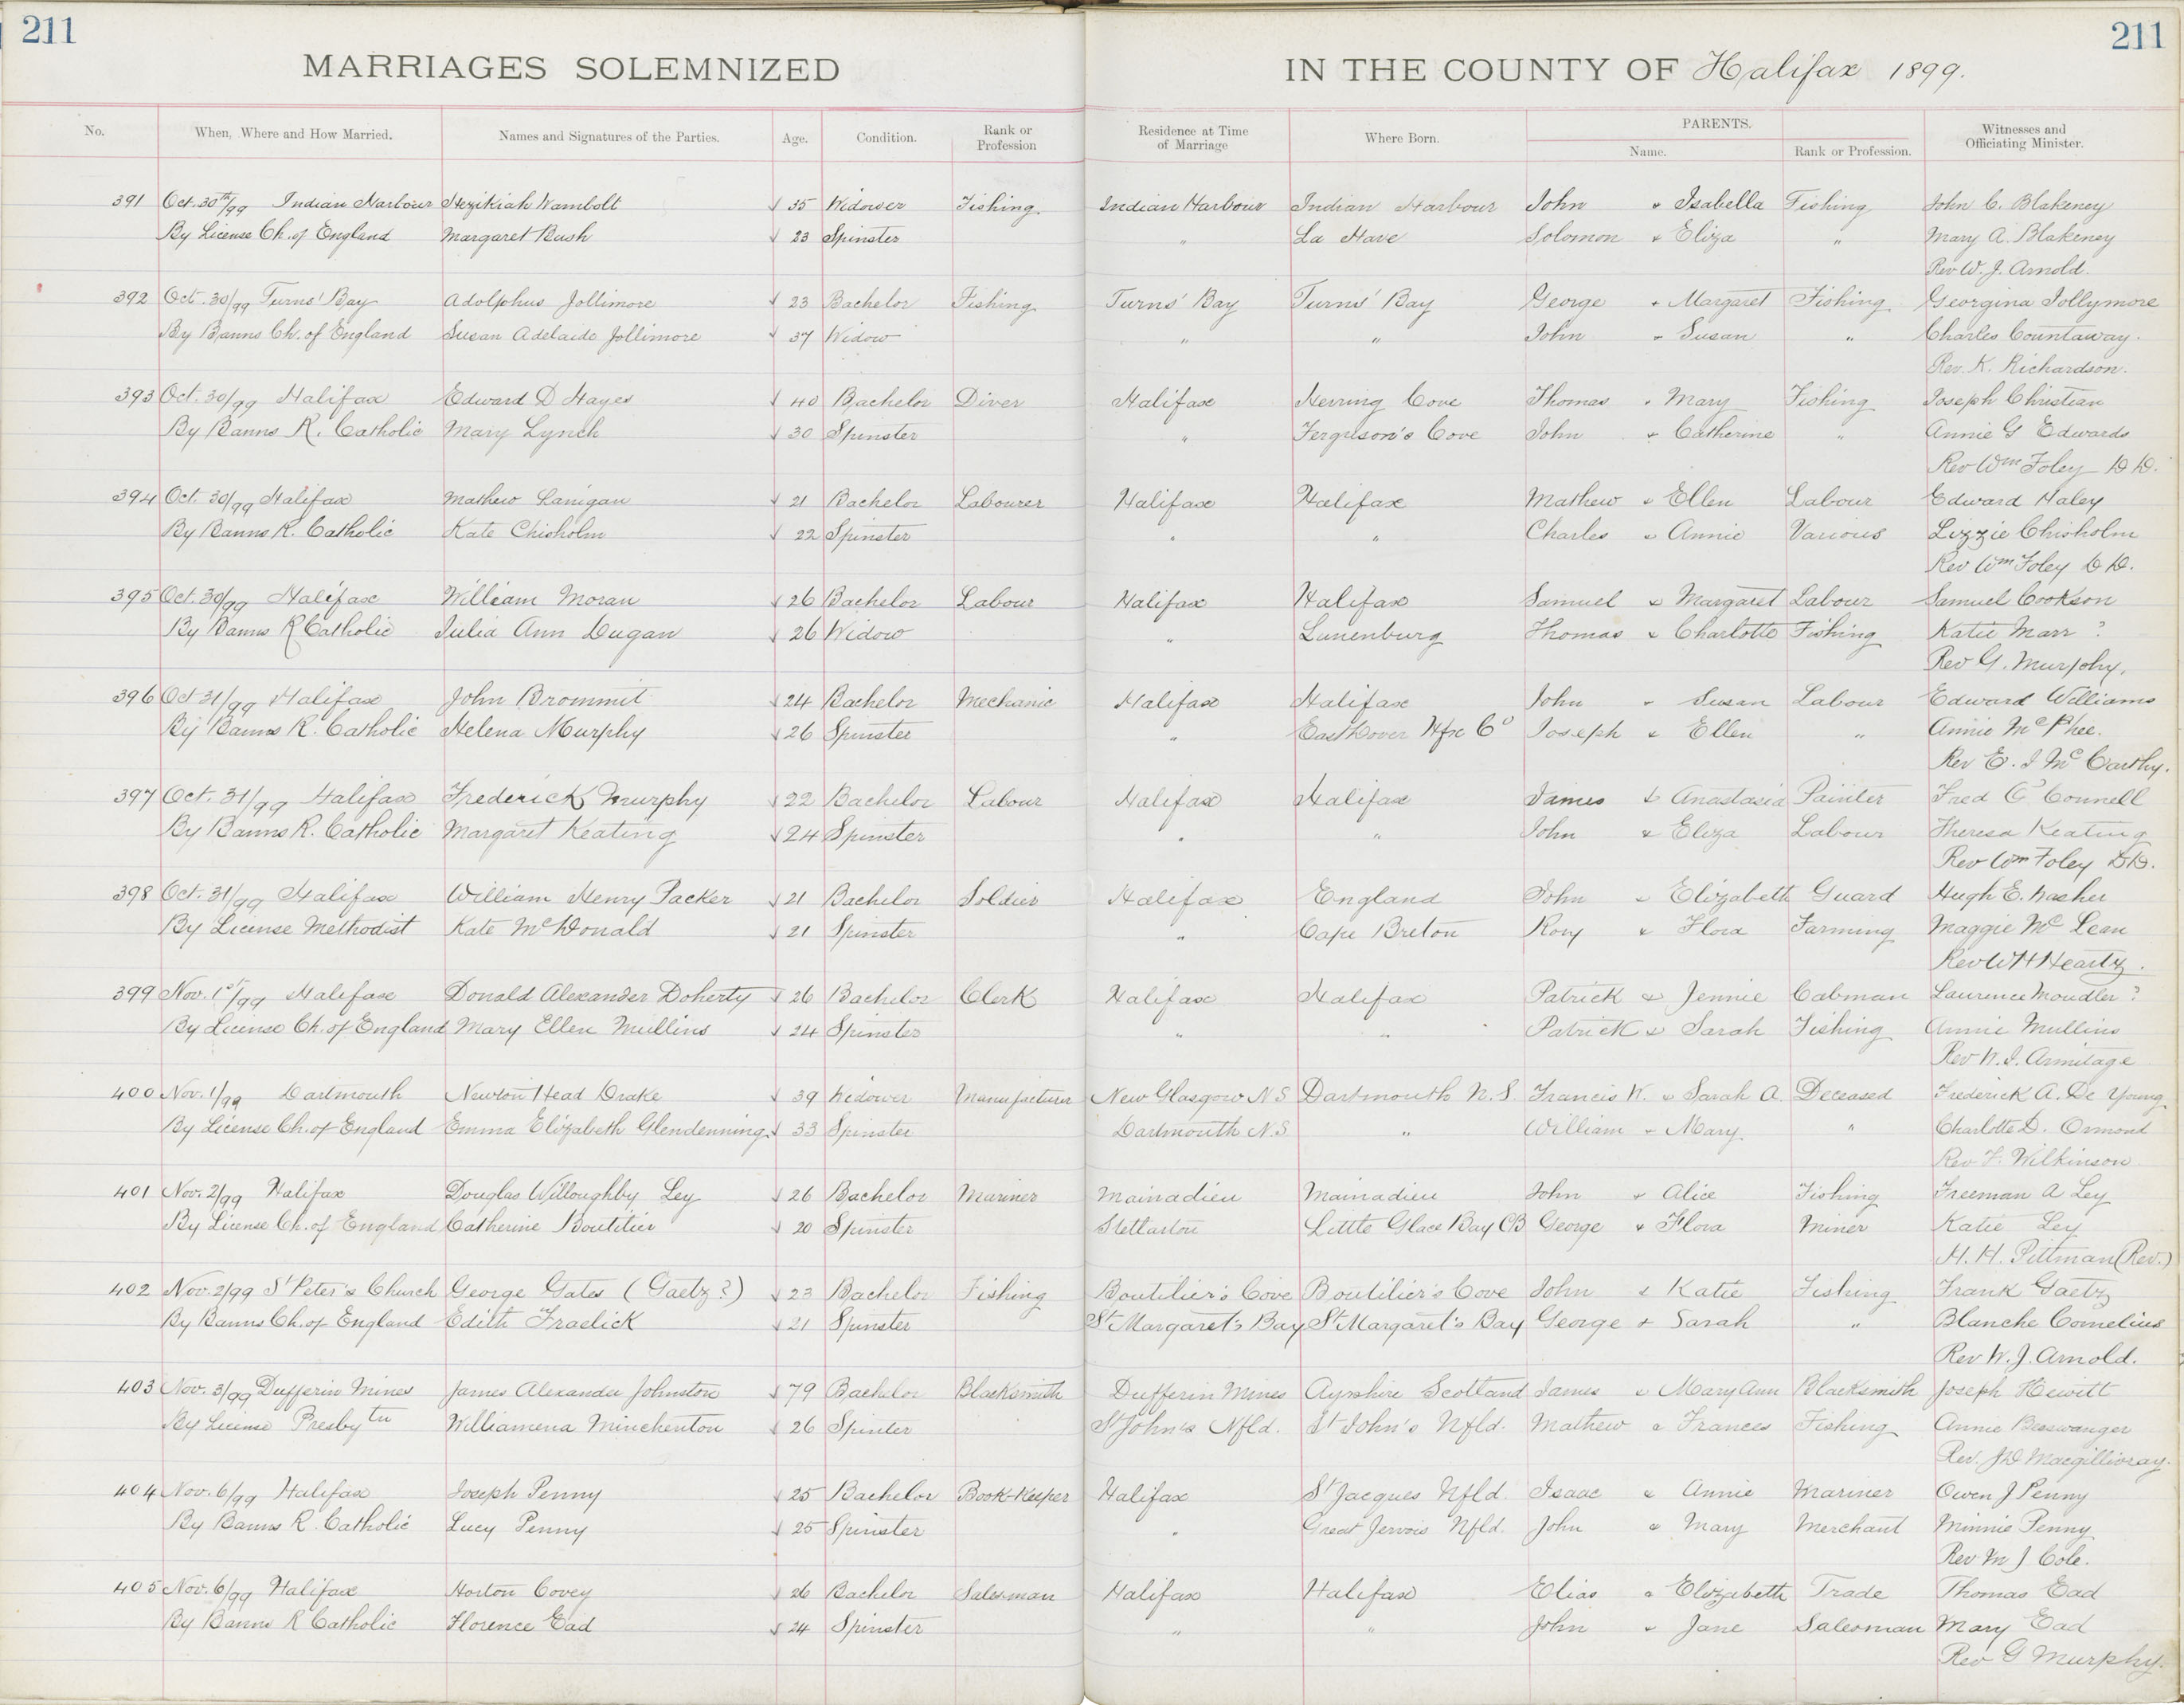 211
211
MARRIAGES SOLEMNIZED IN THE COUNTY OF Halifax 1899.
No. When, Where and How Married. Names and Signatures of the Parties. Age. Condition. Rank or Profession Residence at Time of Marriage Where Born. PARENTS. Name. Rank or Profession. Witnesses and Officiating Minister.
391 Oct. 30th/99 Indian Harbour Hezikiah Wambolt 35 Widower Fishing Indian Harbour Indian Harbour John & Isabella Fishing John C. Blakeney
By License Ch. of England Margaret Bush 23 Spinster " La Have Solomon & Eliza " Mary A. Blakeney
Rev W. J. Arnold.
392 Oct. 30/99 Turns' Bay Adolphus Jollimore 23 Bachelor Fishing Turns' Bay Turns' Bay George & Margaret Fishing Georgina Jollymore
By Banns Ch. of England Susan Adelaide Jollimore 37 Widow " " John & Susan " Charles Countaway.
Rev. K. Richardson.
393 Oct. 30/99 Halifax Edward D Hayes 40 Bachelor Diver Halifax Herring Cove Thomas & Mary Fishing Joseph Christian
By Banns R. Catholic Mary Lynch 30 Spinster " Ferguson's Cove John & Catherine " Annie G Edwards
Rev Wm Foley D.D.
394 Oct. 30/99 Halifax Mathew Lanigan 21 Bachelor Labourer Halifax Halifax Mathew & Ellen Labour Edward Haley
By Banns R. Catholic Kate Chisholm 22 Spinster " " Charles & Annie Various Lizzie Chisholm
Rev Wm Foley D.D.
395 Oct. 30/99 Halifax William Moran 26 Bachelor Labour Halifax Halifax Samuel & Margaret Labour Samuel Cookson
By Banns R Catholic Julia Ann Dugan 26 Widow " Lunenburg Thomas & Charlotte Fishing Katie Marr ?
Rev G. Murphy.
396 Oct 31/99 Halifax John Brommit 24 Bachelor Mechanic Halifax Halifax John & Susan Labour Edward Williams
By Banns R. Catholic Helena Murphy 26 Spinster " East Dover Hfx Co Joseph & Ellen " Annie McPhee.
Rev E. J McCarthy.
397 Oct. 31/99 Halifax Frederick Murphy 22 Bachelor Labour Halifax Halifax James & Anastasia Painter Fred O'Connell
By Banns R. Catholic Margaret Keating 24 Spinster " " John & Eliza Labour Theresa Keating
Rev Wm Foley D.D.
398 Oct. 31/99 Halifax William Henry Packer 21 Bachelor Soldier Halifax England John & Elizabeth Guard Hugh E.
By License Methodist Kate McDonald 21 Spinster " Cape Breton Rory & Flora Farming Maggie McLean
Rev W H Heartz.
399 Nov. 1st/99 Halifax Donald Alexander Doherty 26 Bachelor Clerk Halifax Halifax Patrick & Jennie Cabman Laurence Moudler ?
By License Ch. of England Mary Ellen Mullins 24 Spinster " " Patrick & Sarah Fishing Annie Mullins
Rev W. J. Armitage
400 Nov. 1/99 Dartmouth Newton Head Drake 39 Widower Manufacturer New Glasgow N S Dartmouth N. S. Francis W. & Sarah A. Deceased Frederick A. De Young
By License Ch. of England Emma Elizabeth Glendenning 33 Spinster Dartmouth N.S " William & Mary " Charlotte D. Ormond
Rev F. Wilkinson
401 Nov. 2/99 Halifax Douglas Willoughby Ley 26 Bachelor Mariner Mainadieu Mainadieu John & Alice Fishing Freeman A Ley
By License Ch. of England Catherine Boutilier 20 Spinster Stellarton Little Glace Bay CB George & Flora Miner Katie Ley
H. H. Pittman (Rev.)
402 Nov. 2/99 St Peter's Church George Gates (Gaetz?) 23 Bachelor Fishing Boutilier's Cove Boutilier's Cove John & Katie Fishing Frank Gaetz
By Banns Ch. of England Edith Fraelick 21 Spinster St Margaret's Bay St Margaret's Bay George & Sarah " Blanche Cornelius
Rev W. J. Arnold.
403 Nov. 3/99 Dufferin Mines James Alexander Johnston 79 Bachelor Blacksmith Dufferin Mines Ayrshire Scotland James & Mary Ann Blacksmith Joseph Hewitt
By License Presbytn Williamena Minchenton 26 Spinster St John's Nfld. St John's Nfld. Mathew & Frances Fishing Annie Beswanger
Rev. J D Macgillivray.
404 Nov. 6/99 Halifax Joseph Penny 25 Bachelor Book-Keeper Halifax St Jacques Nfld. Isaac & Annie Mariner Owen J Penny
By Banns R. Catholic Lucy Penny 25 Spinster " Great Jervois Nfld. John & Mary Merchant Minnie Penny
Rev M J Cole.
405 Nov. 6/99 Halifax Horton Covey 26 Bachelor Salesman Halifax Halifax Elias & Elizabeth Trade Thomas Ead
By Banns R Catholic Florence Ead 24 Spinster " " John & Jane Salesman Mary Ead
Rev G Murphy.